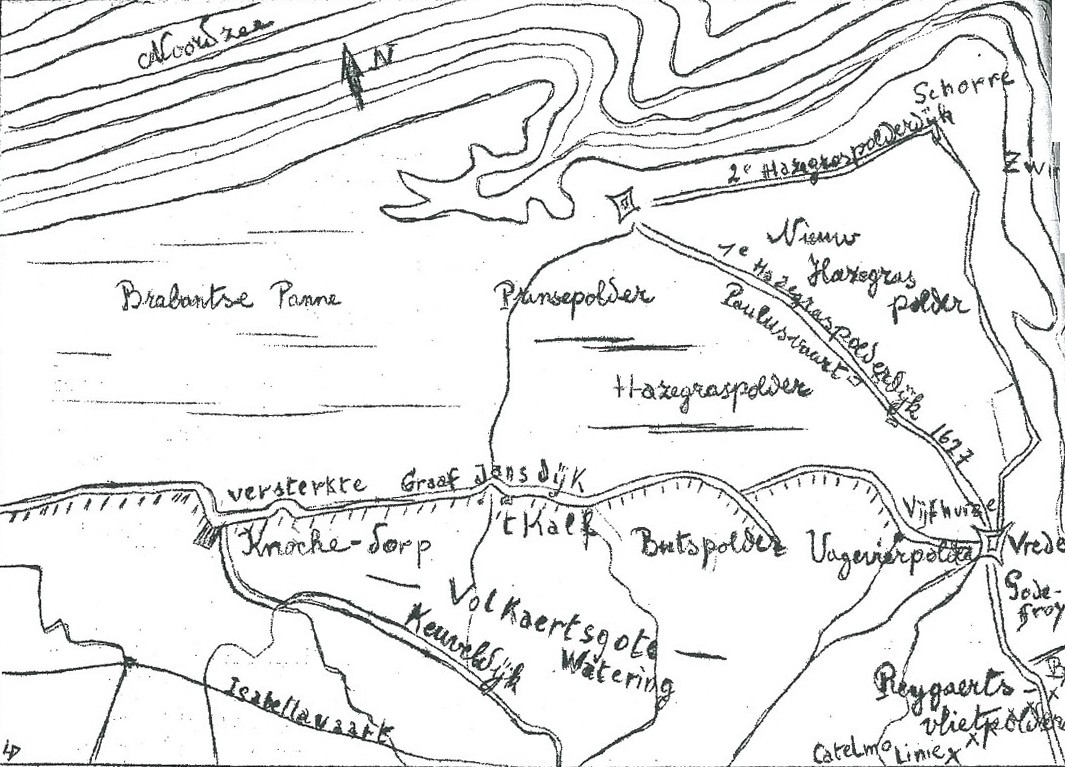 Noordzee
N
Schorre
2e Hazegraspolderdijk
Zwin
Nieuw
Hazegras
polder
1e Hazegraspolderdijk 1627
Paulusvaart
Brabantse Panne
Prinsepolder
Hazegraspolder
versterkte Graaf Jansdijk
Vijfhuize
Knocke-dorp
't Kalf
Butspolder
Vagevierpolder
Vrede
Gode-
froy
Volkaertsgote
Watering
Keuveldijk
Isabellavaart
Reygaerts-
vlietpolder
Catelmo Linie